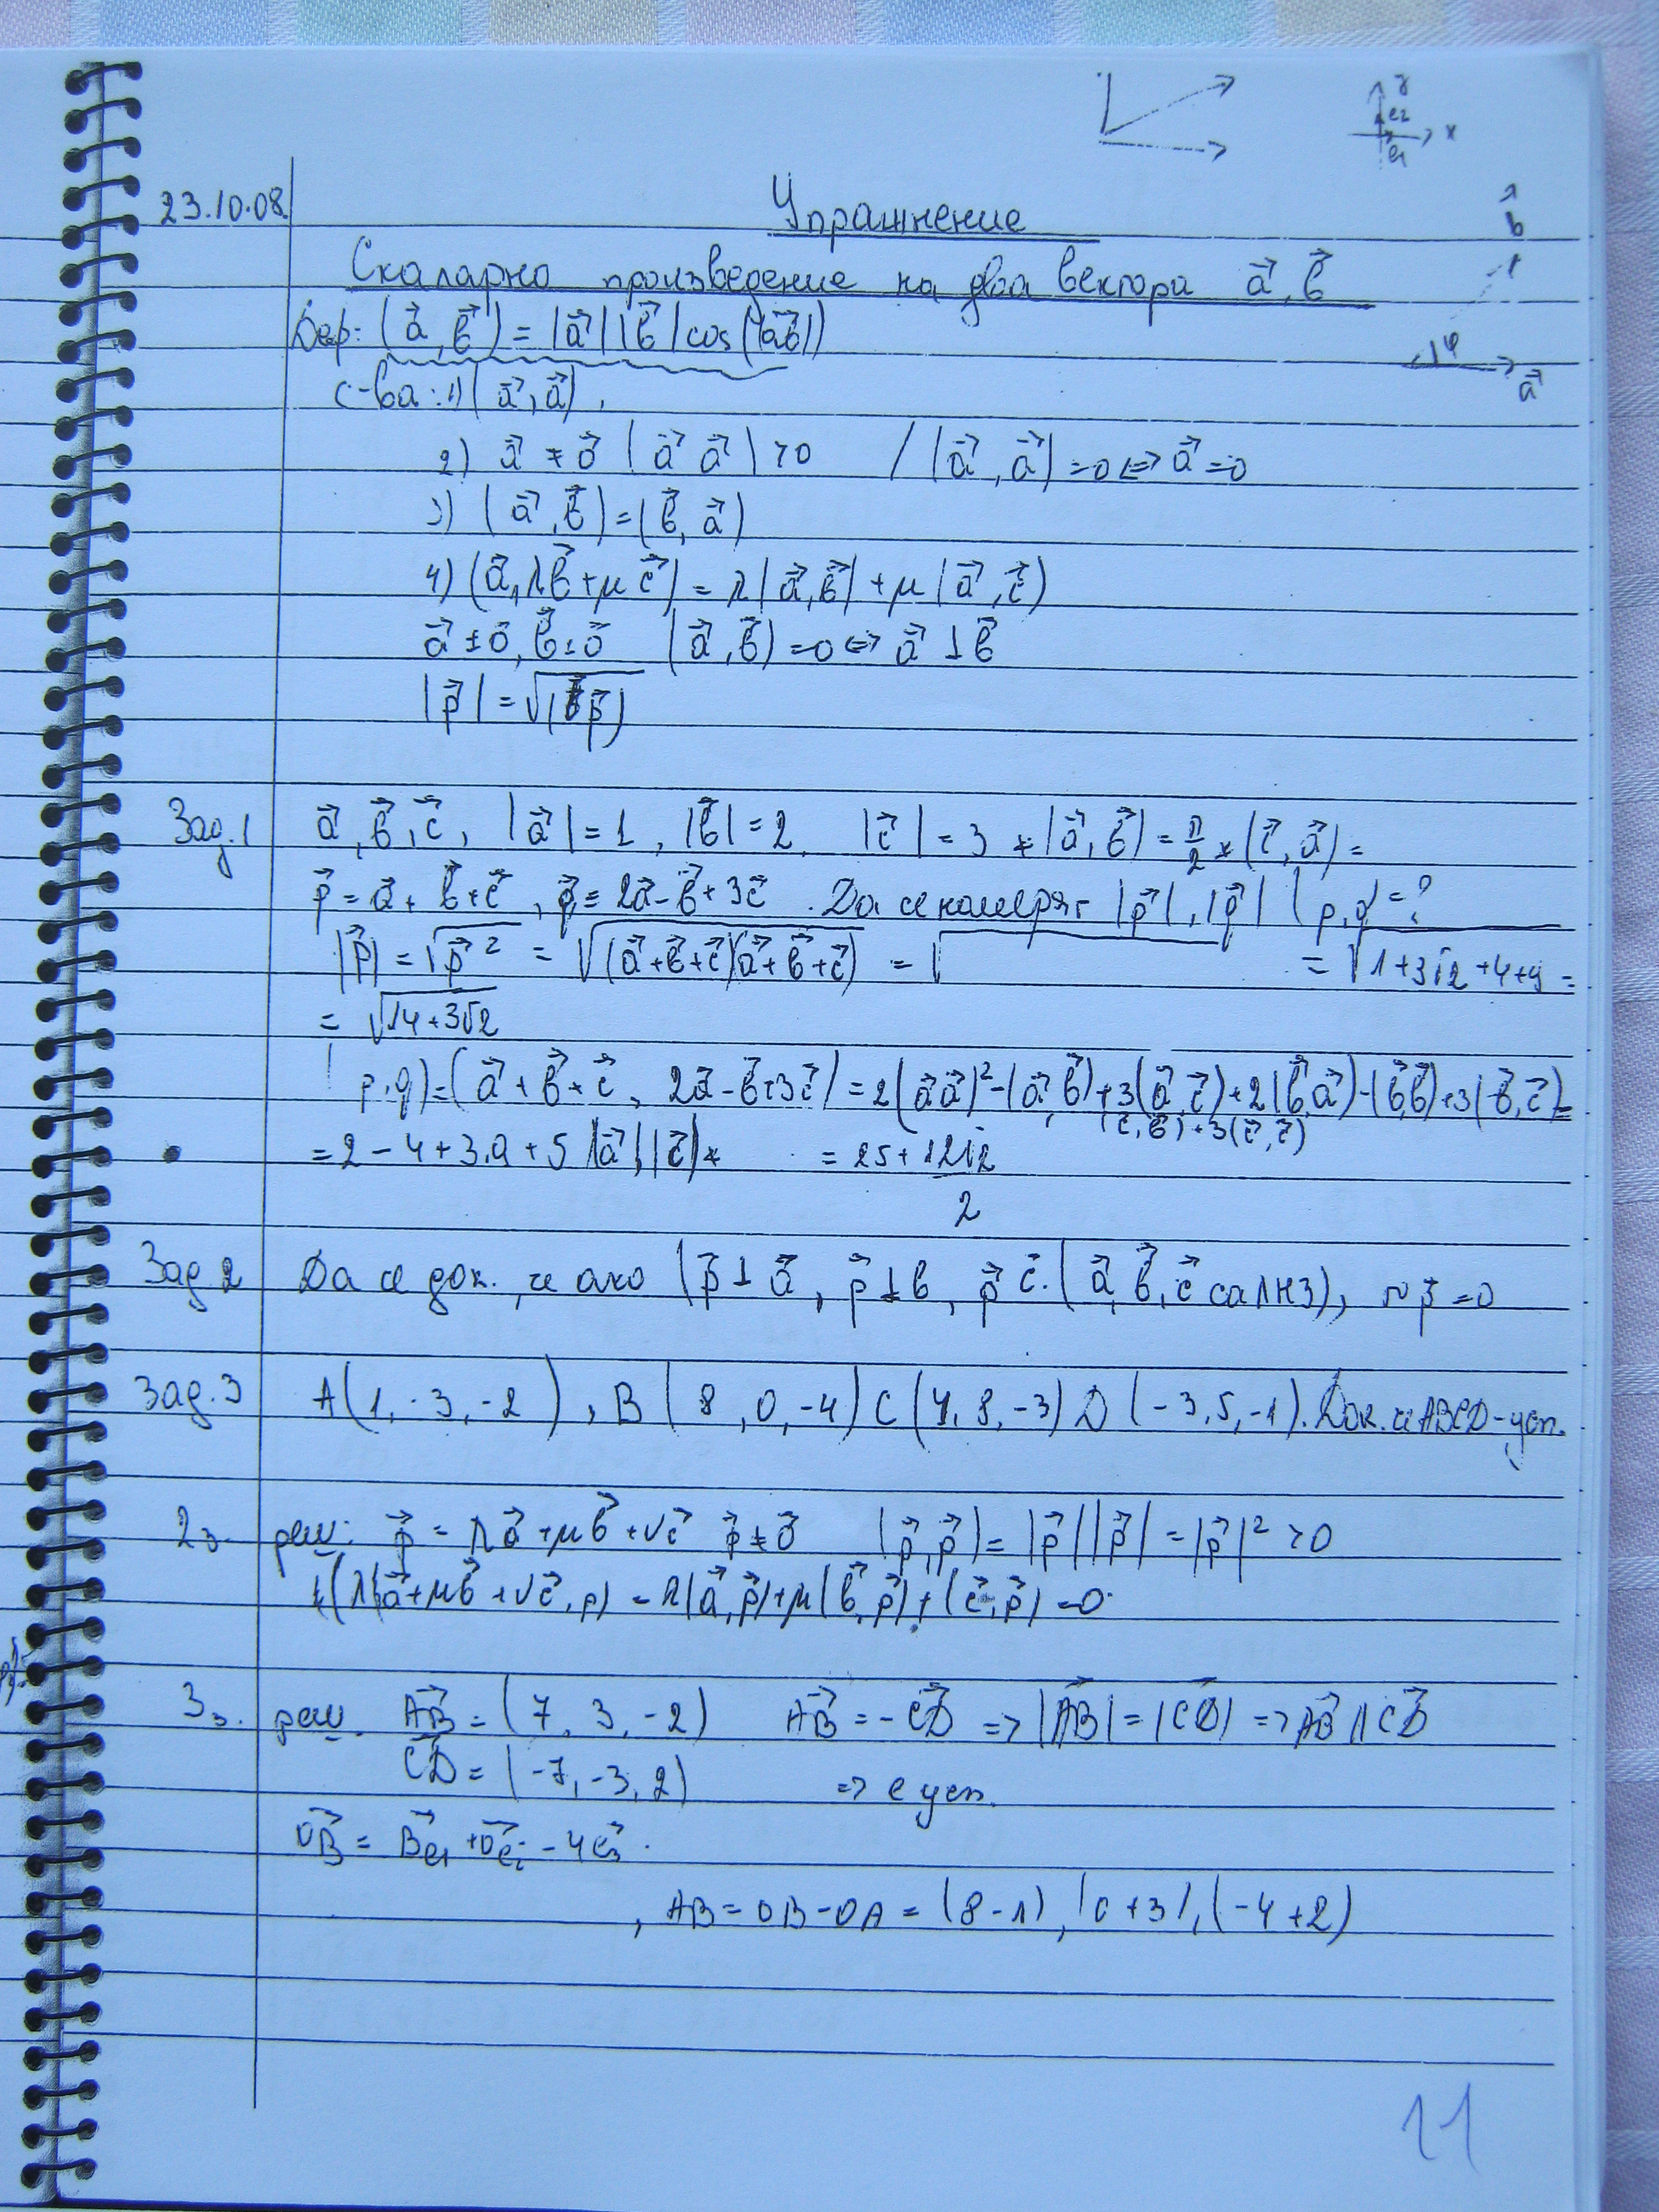 y
e2
x
e1
23.10.08.
Упражнение
Скаларно произведение на два вектора a⃗, b⃗
b
Деф: (a⃗, b⃗) = |a⃗| |b⃗| cos(|ab⃗|)
φ
a⃗
с-ва: 1) (a⃗, a⃗).
2) a⃗ ≠ o⃗ (a⃗ a⃗) > 0 / (a⃗, a⃗) = 0 <=> a⃗ = 0
3) (a⃗, b⃗) = (b⃗, a⃗)
4) (a⃗, λb⃗ + μc⃗) = λ(a⃗, b⃗) + μ(a⃗, c⃗)
a⃗ ≠ o⃗, b⃗ ≠ o⃗ (a⃗, b⃗) = 0 <=> a⃗ ⊥ b⃗
|p⃗| = √(p⃗)
Зад.1 a⃗, b⃗, c⃗, |a⃗| = 1, |b⃗| = 2, |c⃗| = 3 ∢(a⃗, b⃗) = π/2 ∢(c⃗, a⃗) =
p⃗ = a⃗ + b⃗ + c⃗, q⃗ = 2a⃗ - b⃗ + 3c⃗. Да се намерят |p⃗|, |q⃗| (p, q) = ?
|p⃗| = √p⃗² = √(a⃗+b⃗+c⃗)(a⃗+b⃗+c⃗) = √ = √1+3√2+4+9 =
= √14+3√2
(p, q) = (a⃗ + b⃗ + c⃗, 2a⃗ - b⃗ + 3c⃗) = 2(a⃗a⃗)² - (a⃗, b⃗) + 3(a⃗, c⃗) + 2(b⃗, a⃗) - (b⃗, b⃗) + 3(b⃗, c⃗) =
(c⃗, b⃗) + 3(c⃗, c⃗)
= 2 - 4 + 3.9 + 5 |a⃗| |c⃗| ∢ = 25 + 12√2/2
Зад 2 Да се док., че ако (p⃗ ⊥ a⃗, p⃗ ⊥ b, p⃗ c⃗. (a⃗, b⃗, c⃗ са ЛНЗ), p⃗ = 0
Зад.3 A(1, -3, -2), B(8, 0, -4) C(4, 8, -3) D(-3, 5, -1). Док. че ABCD - усп.
2з. реш: p⃗ = λa⃗ + μb⃗ + νc⃗ p⃗ ≠ o⃗ (p⃗, p⃗) = |p⃗| |p⃗| = |p⃗|² > 0
(λa⃗ + μb⃗ + νc⃗, p) = λ(a⃗, p⃗) + μ(b⃗, p⃗) + (c⃗, p⃗) = 0
3з. реш. AB⃗ = (7, 3, -2) AB⃗ = -CD⃗ => |AB⃗| = |CD⃗| => AB⃗ || CD⃗
CD⃗ = (-7, -3, 2) => е усп.
OB⃗ = 8e⃗1 + 0e⃗2 - 4e⃗3.
, AB = OB - OA = (8-1), (0+3), (-4+2)
11